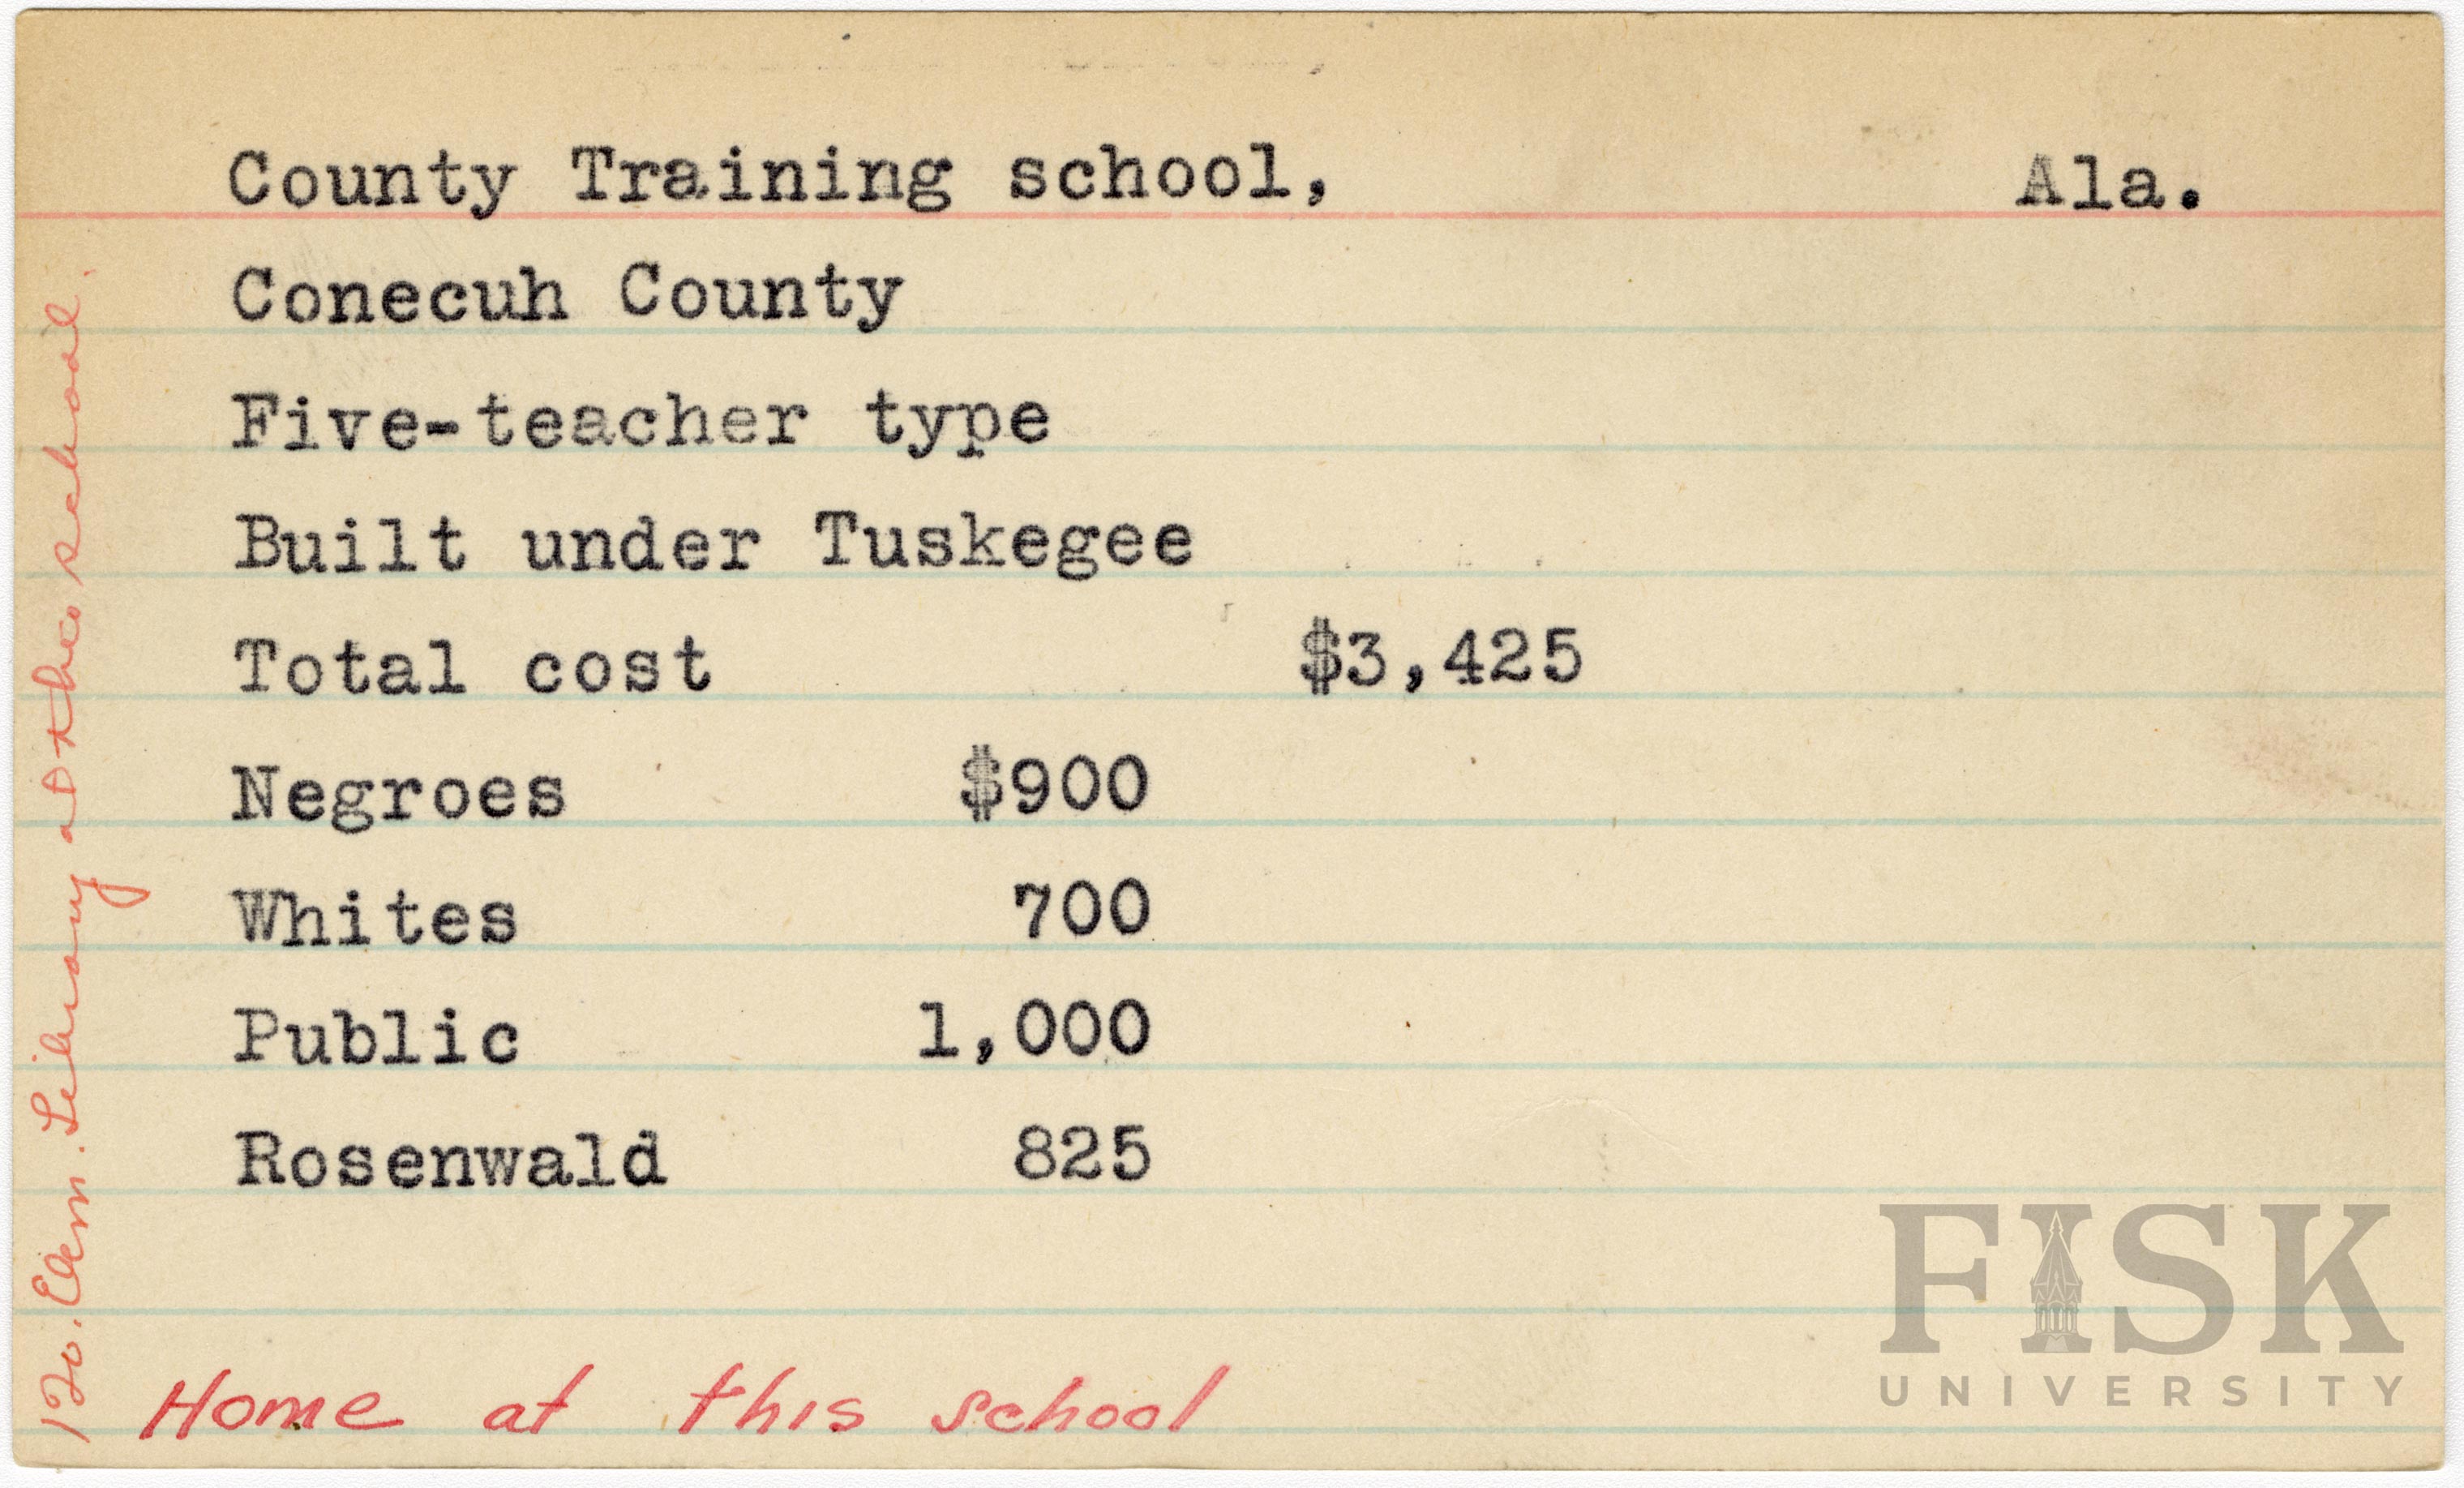 County Training school, Ala.
Conecuh County
Five-teacher type
Built under Tuskegee
Total cost $3,425
Negroes $900
Whites 700
Public 1,000
Rosenwald 825
Home at this school
120. Elem. Library at the school.
FISK
UNIVERSITY